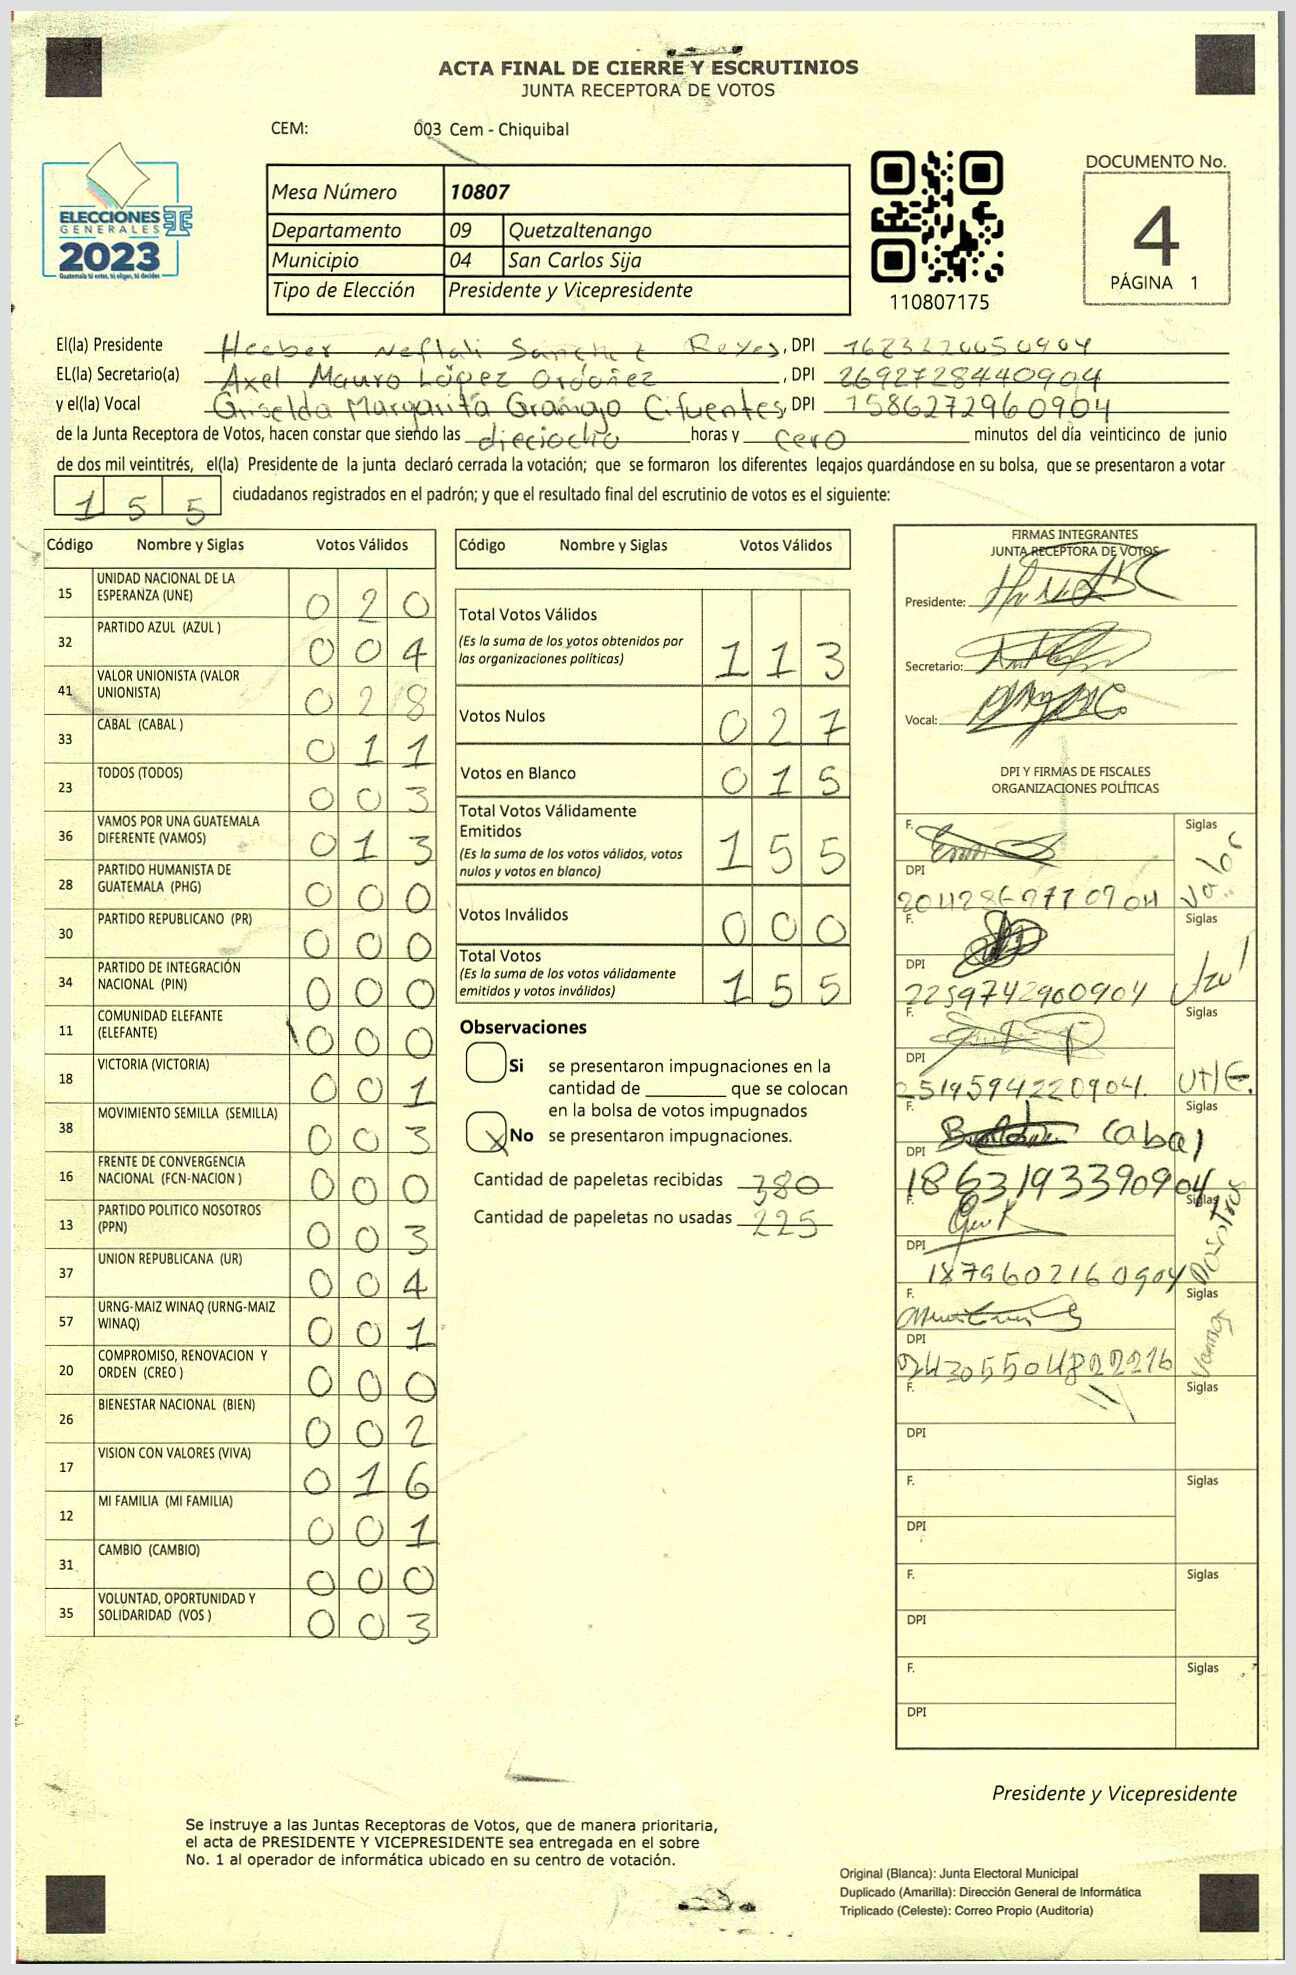 ACTA FINAL DE CIERRE Y ESCRUTINIOS
JUNTA RECEPTORA DE VOTOS
CEM: 003 Cem - Chiquibal
ELECCIONES
GENERALES
2023
Guatemala tú eres, tú eliges, tú decides
Mesa Número 10807
Departamento 09 Quetzaltenango
Municipio 04 San Carlos Sija
Tipo de Elección Presidente y Vicepresidente
110807175
DOCUMENTO No.
4
PÁGINA 1
El(la) Presidente Heeber Neftali Sanchez Reyes, DPI 1683220050904
EL(la) Secretario(a) Axel Mauro López Ordóñez, DPI 2692728440904
y el(la) Vocal Griselda Margarita Gramajo Cifuentes, DPI 1586272960904
de la Junta Receptora de Votos, hacen constar que siendo las dieciocho horas y cero minutos del día veinticinco de junio
de dos mil veintitrés, el(la) Presidente de la junta declaró cerrada la votación; que se formaron los diferentes legajos guardándose en su bolsa, que se presentaron a votar
155 ciudadanos registrados en el padrón; y que el resultado final del escrutinio de votos es el siguiente:
Código Nombre y Siglas Votos Válidos
15 UNIDAD NACIONAL DE LA ESPERANZA (UNE) 020
32 PARTIDO AZUL (AZUL ) 004
41 VALOR UNIONISTA (VALOR UNIONISTA) 028
33 CABAL (CABAL ) 011
23 TODOS (TODOS) 003
36 VAMOS POR UNA GUATEMALA DIFERENTE (VAMOS) 013
28 PARTIDO HUMANISTA DE GUATEMALA (PHG) 000
30 PARTIDO REPUBLICANO (PR) 000
34 PARTIDO DE INTEGRACIÓN NACIONAL (PIN) 000
11 COMUNIDAD ELEFANTE (ELEFANTE) 000
18 VICTORIA (VICTORIA) 001
38 MOVIMIENTO SEMILLA (SEMILLA) 003
16 FRENTE DE CONVERGENCIA NACIONAL (FCN-NACION ) 000
13 PARTIDO POLITICO NOSOTROS (PPN) 003
37 UNION REPUBLICANA (UR) 004
57 URNG-MAIZ WINAQ (URNG-MAIZ WINAQ) 001
20 COMPROMISO, RENOVACION Y ORDEN (CREO ) 000
26 BIENESTAR NACIONAL (BIEN) 002
17 VISION CON VALORES (VIVA) 016
12 MI FAMILIA (MI FAMILIA) 001
31 CAMBIO (CAMBIO) 000
35 VOLUNTAD, OPORTUNIDAD Y SOLIDARIDAD (VOS ) 003
Código Nombre y Siglas Votos Válidos
Total Votos Válidos 113
(Es la suma de los votos obtenidos por
las organizaciones políticas)
Votos Nulos 027
Votos en Blanco 015
Total Votos Válidamente
Emitidos 155
(Es la suma de los votos válidos, votos
nulos y votos en blanco)
Votos Inválidos 000
Total Votos 155
(Es la suma de los votos válidamente
emitidos y votos inválidos)
Observaciones
Si se presentaron impugnaciones en la
cantidad de ________ que se colocan
en la bolsa de votos impugnados
X No se presentaron impugnaciones.
Cantidad de papeletas recibidas 380
Cantidad de papeletas no usadas 225
FIRMAS INTEGRANTES
JUNTA RECEPTORA DE VOTOS
Presidente:
Secretario:
Vocal:
DPI Y FIRMAS DE FISCALES
ORGANIZACIONES POLÍTICAS
F. Siglas Valor
DPI
F. Siglas Azul
DPI 2259742900904
F. Siglas
DPI 2519594220904
F. Cabal Siglas
DPI 1863193390904
F. Siglas
DPI 1879602160904
F. Siglas Vamos
DPI 2430550482216
F. Siglas
DPI
F. Siglas
DPI
F. Siglas
DPI
F. Siglas
DPI
Presidente y Vicepresidente
Se instruye a las Juntas Receptoras de Votos, que de manera prioritaria,
el acta de PRESIDENTE Y VICEPRESIDENTE sea entregada en el sobre
No. 1 al operador de informática ubicado en su centro de votación.
Original (Blanca): Junta Electoral Municipal
Duplicado (Amarilla): Dirección General de Informática
Triplicado (Celeste): Correo Propio (Auditoria)